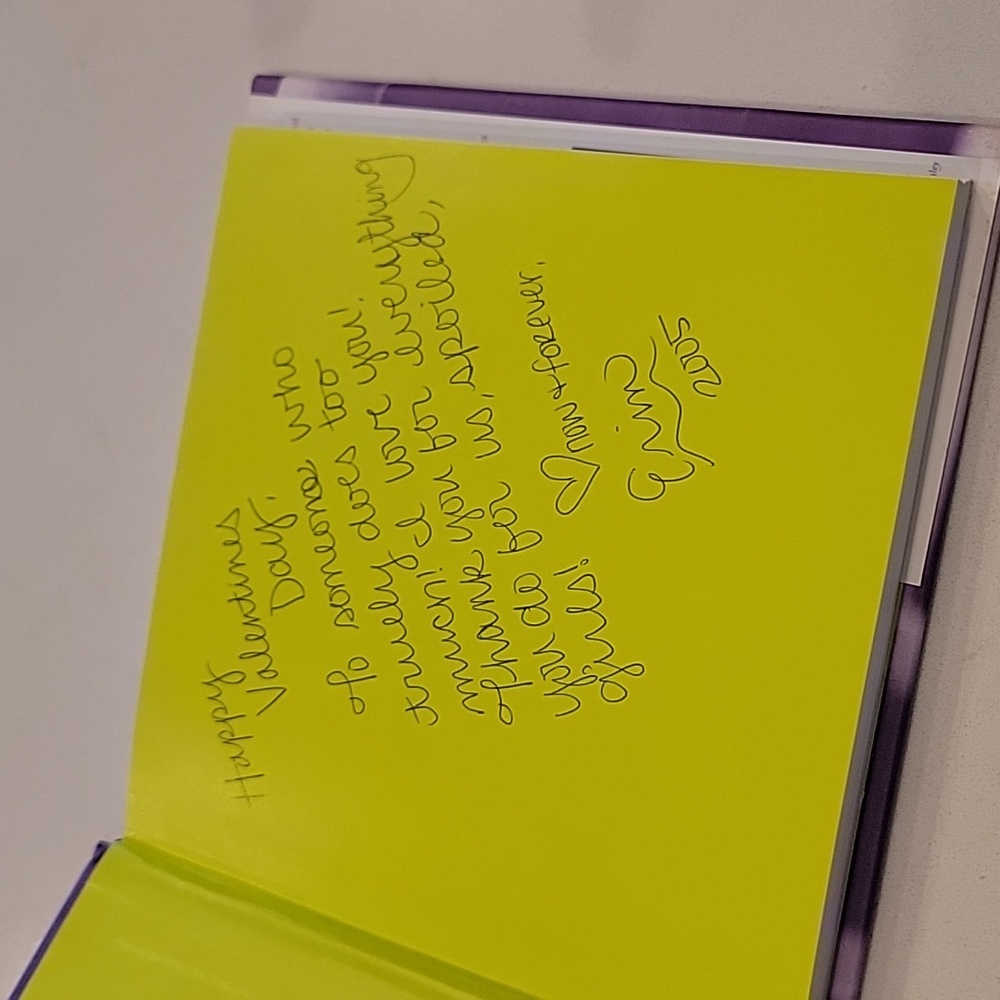 Happy
Valentines
Day.
To someone who
truely does too
much! I love you!
Thank you for everything
you do for us, spoiled,
girls!
♡ now & forever,
Erin
2005